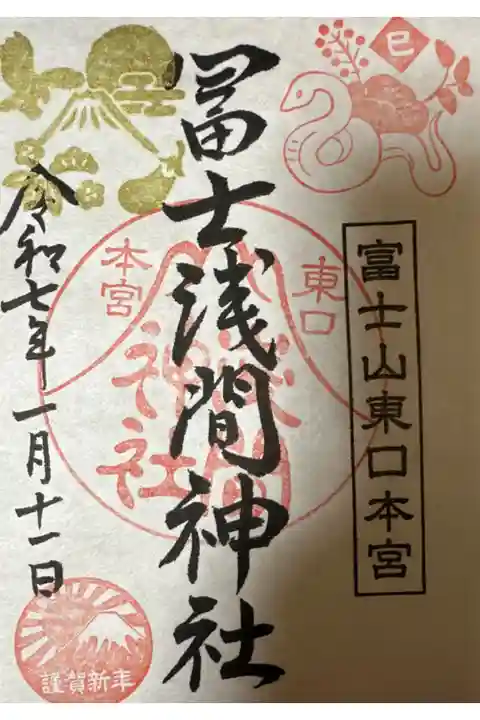 巳
富士山東口本宮
冨士浅間神社
東口
本宮
浅間
神社
令和七年一月十一日
謹賀新年